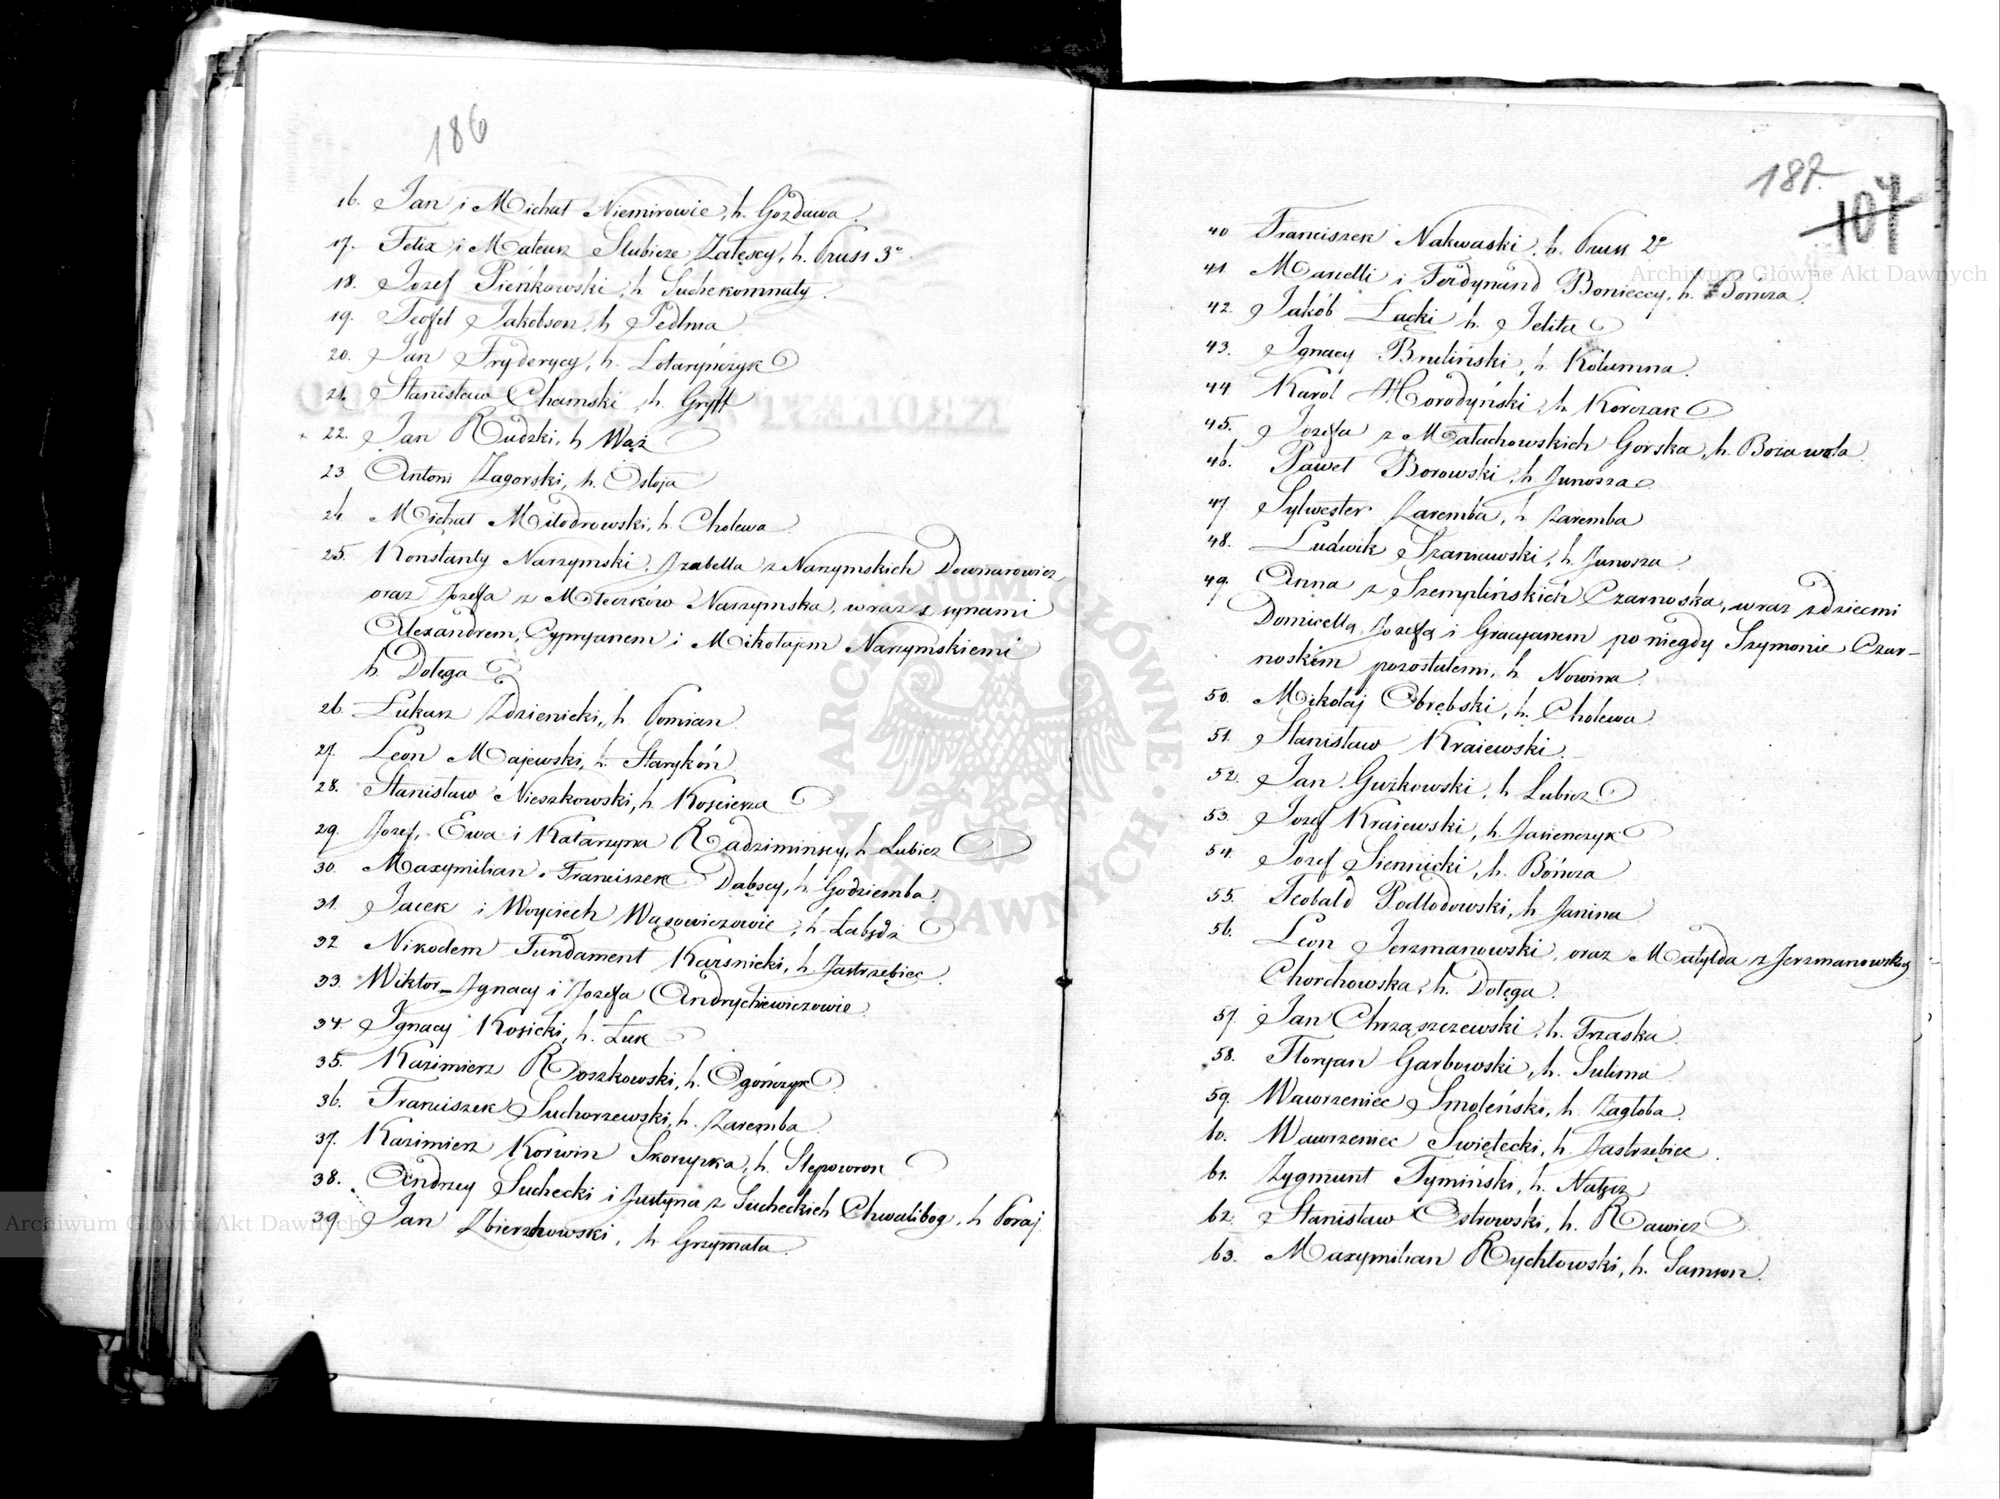 186
16. Jan i Michał Niemirowie, h. Gozdawa.
17. Felix i Mateusz Slubicze Załęscy, h. Pruss 3º
18. Józef Pieńkowski, h. Suchekomnaty.
19. Teofil Jakobson, h. Pedlma
20. Jan Fryderycy, h. Lotaryńczyk
21. Stanisław Chamski, h. Gryff
22. Jan Rudzki, h Wąż
23 Antoni Zagorski, h. Ostoja
24 Michał Miłodrowski, h. Cholewa
25. Konstanty Narzymski, Izabella z Narzymskich Downarowicz,
oraz Józefa z Młeczków Narzymska, wraz z synami
Alexandrem, Cypryanem i Mikołajem Narzymskiemi
h. Dołęga
26. Łukasz Zdzienicki, h. Pomian
27. Leon Majewski, h. Starykóń
28. Stanisław Nieszkowski, h. Kościesza
29. Józef, Ewa i Katarzyna Radzimińscy, h. Lubicz
30. Maxymilian Franciszek Dąbscy, h. Godziemba.
31. Jacek i Woyciech Wąsowiczowie, h. Łabędź
32 Nikodem Fundament Karśnicki, h. Jastrzębiec.
33. Wiktor Ignacy i Józefa Andrychiewiczowie
34. Ignacy Kosicki, h. Łuk
35. Kazimierz Roszkowski, h. Ogończyk
36. Franciszek Suchorzewski, h. Zaremba
37. Kazimierz Korwin Skorupka, h. Slepowron
38. Andrzey Suchecki i Justyna z Sucheckich Chwalibog, h Poraj
39. Jan Zbierzchowski, h. Grzymała
187.
107
40 Franciszek Nakwaski, h. Pruss 2º
41. Marielli i Ferdynand Bonieccy, h. Bończa.
42. Jakób Łącki h. Jelita
43. Ignacy Bruliński, h. Kolumna.
44 Karol Horodyński, h. Korczak
45. Józefa z Małachowskich Gorska, h. Bożawola
46. Paweł Borowski, h. Junosza
47. Sylwester Zaremba, h. Zaremba
48. Ludwik Szaniawski, h. Junosza
49. Anna z Szemplińskich Czarnoska, wraz z dziećmi
Domicellą, Józefą i Gracyanem po niegdy Szymonie Czar-
noskim pozostałemi, h. Nowina
50. Mikołaj Obrębski, h. Cholewa
51. Stanisław Kraiewski.
52. Jan Gużkowski, h. Lubicz
53. Józef Kraiewski, h. Jasieńczyk
54. Józef Siennicki, h. Bończa
55. Teobald Podłodowski, h. Janina
56. Leon Jerzmanowski, oraz Matylda z Jerzmanowskich
Chorchowska, h. Dołęga.
57. Jan Chrząszczewski, h. Trzaska
58. Floryan Garbowski, h. Sulima
59. Wawrzeniec Smoleński, h. Zagłoba.
60. Wawrzeniec Swięłecki, h. Jastrzębiec.
61. Zygmunt Tymiński, h. Nałęcz
62. Stanisław Ostrowski, h. Rawicz
63. Maxymilian Rychłowski, h. Samson.
Archiwum Główne Akt Dawnych
Archiwum Główne Akt Dawnych
ARCHIWUM GŁÓWNE AKT DAWNYCH